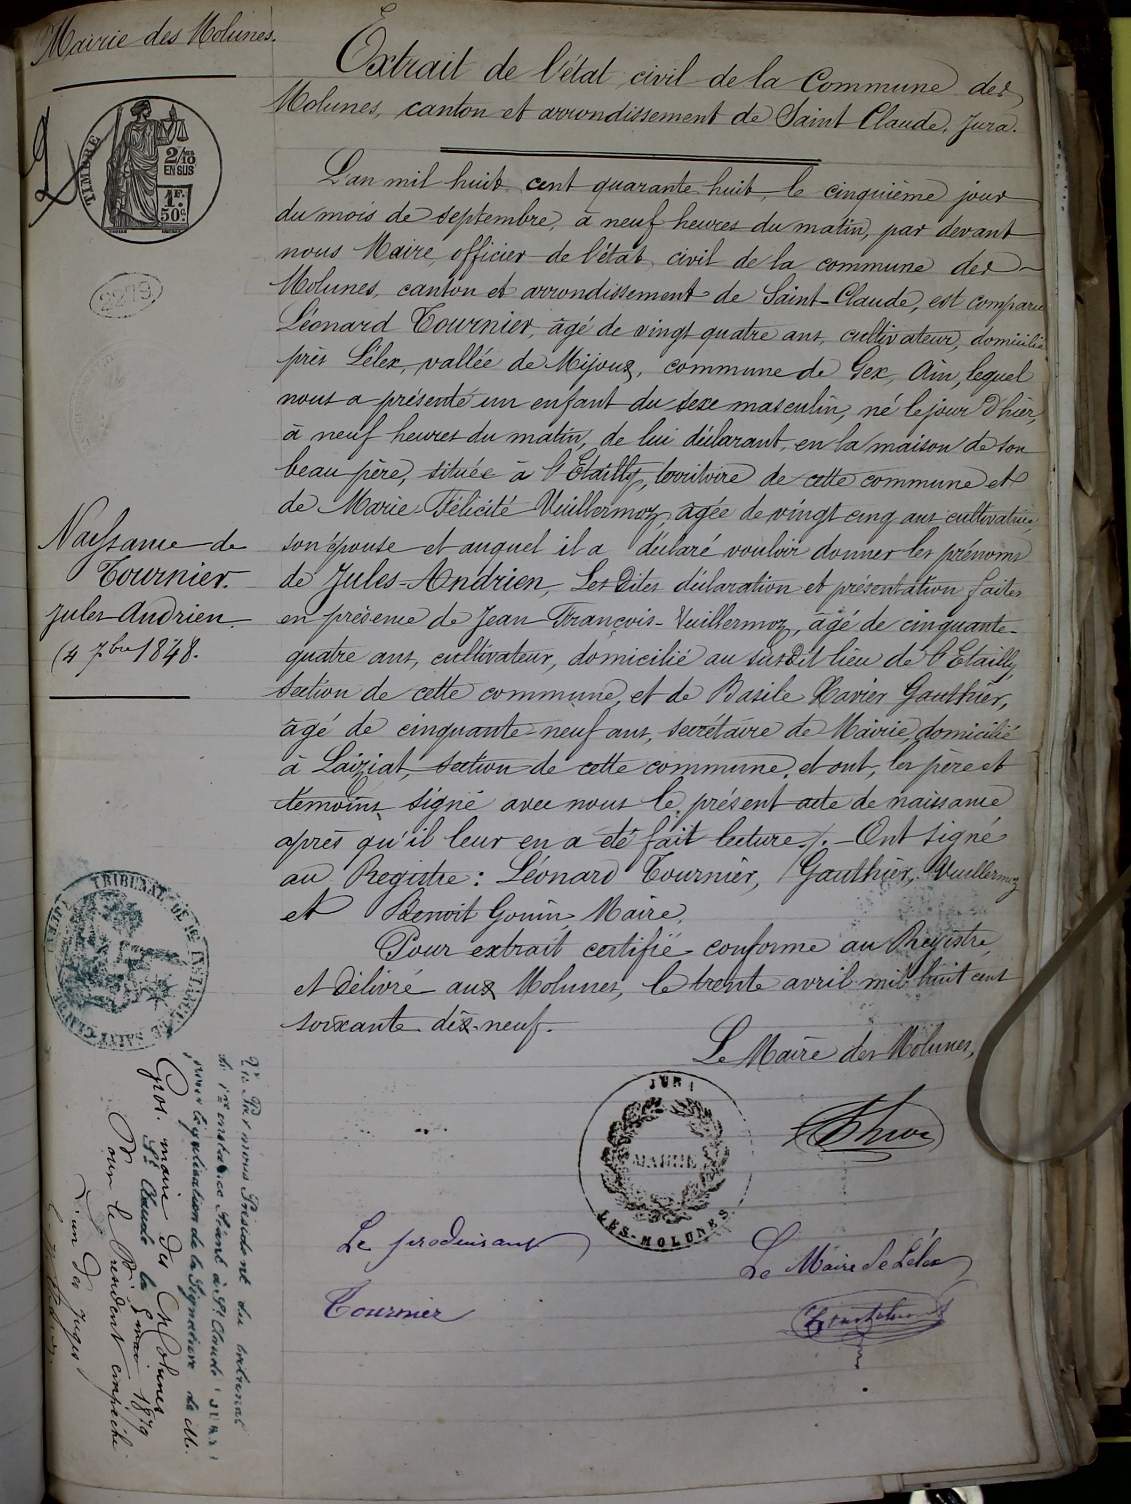 Mairie des Molunes.
Extrait de l'état civil de la Commune des
Molunes, canton et arrondissement de Saint Claude, Jura.
TIMBRE
2/10
EN SUS
1F.
50c.
2279
L'an mil huit cent quarante huit, le cinquième jour
du mois de septembre, à neuf heures du matin, par devant
nous Maire, officier de l'état civil de la commune des
Molunes, canton et arrondissement de Saint-Claude, est comparu
Léonard Tournier, âgé de vingt quatre ans, cultivateur, domicilié
près Lélex, vallée de Mijoux, commune de Gex, Ain, lequel
nous a présenté un enfant du sexe masculin, né le jour d'hier,
à neuf heures du matin, de lui déclarant, en la maison de son
beau père, située à l'Etailly, territoire de cette commune et
de Marie Félicité Vuillermoz, agée de vingt cinq ans cultivatrice,
son épouse et auquel il a déclaré vouloir donner les prénoms
de Jules-Andrien, Les dites déclaration et présentation faites
en présence de Jean François-Vuillermoz, âgé de cinquante-
quatre ans, cultivateur, domicilié au susdit lieu de l'Etailly,
section de cette commune, et de Basile Xavier Gauthier,
âgé de cinquante neuf ans, secrétaire de Mairie, domicilié
à Laiziat, section de cette commune, et ont, les père et
témoins signé avec nous le présent acte de naissance
après qu'il leur en a été fait lecture./.- Ont signé
au Registre: Léonard Tournier, Gauthier, Vuillermoz
et Benoit Gouin Maire,
Pour extrait certifié conforme au Registre,
et délivré aux Molunes, le trente avril mil huit cent
soixante dix-neuf.
Le Maire des Molunes,
Nayssance de
Tournier.
Jules-Andrien.
(4 7bre 1848.
TRIBUNAL DE 1re INSTANCE DE SAINT CLAUDE (JURA)
JURA
MAIRIE
LES-MOLUNES
Vu Par nous Président du tribunal
de 1re instance séant à St Claude (JURA)
pour légalisation de la Signature de M.
Gros. maire des Molunes
St Claude le 5 mai 1879
Pour le Président empêché
L'un des juges
Le produisant
Tournier
Le Maire de Lélex